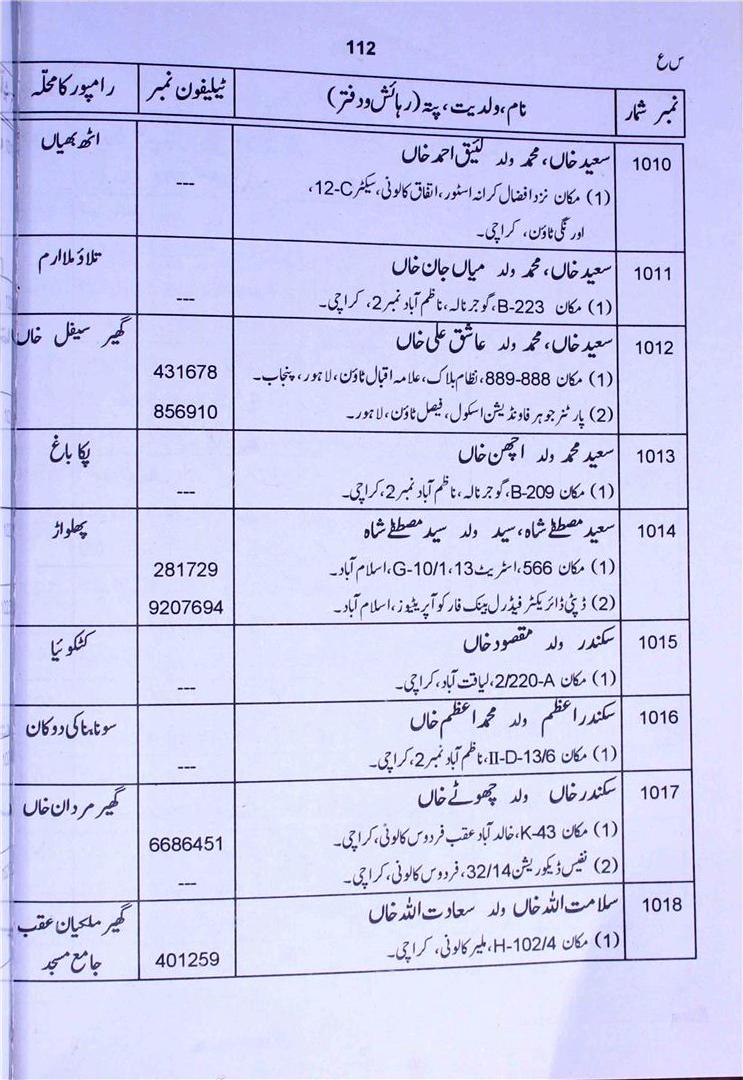 112
س ع
نمبر شمار نام، ولدیت، پتہ (رہائش و دفتر) ٹیلیفون نمبر رامپور کا محلّہ
1010 سعید خاں، محمد ولد لئیق احمد خاں اٹھ بھیاں
(1) مکان نزد افضال کرانہ اسٹور، اتفاق کالونی، سیکٹر 12-C، ---
اورنگی ٹاؤن، کراچی۔
1011 سعید خاں، محمد ولد میاں جان خاں تلاؤ ملا ارم
(1) مکان B-223، گوجر نالہ، ناظم آباد نمبر 2، کراچی۔ ---
1012 سعید خاں، محمد ولد عاشق علی خاں گھیر سیفل خاں
(1) مکان 889-888، نظام بلاک، علامہ اقبال ٹاؤن، لاہور، پنجاب۔ 431678
(2) پارٹنر جوہر فاونڈیشن اسکول، فیصل ٹاؤن، لاہور۔ 856910
1013 سعید محمد ولد اچھن خاں پکا باغ
(1) مکان B-209، گوجر نالہ، ناظم آباد نمبر 2، کراچی۔ ---
1014 سعید مصطفےٰ شاہ، سید ولد سید مصطفےٰ شاہ پھلواڑ
(1) مکان 566، اسٹریٹ 13، G-10/1، اسلام آباد۔ 281729
(2) ڈپٹی ڈائریکٹر فیڈرل بینک فار کوآپریٹیوز، اسلام آباد۔ 9207694
1015 سکندر ولد مقصود خاں کٹکوئیا
(1) مکان 2/220-A، لیاقت آباد، کراچی۔ ---
1016 سکندر اعظم ولد محمد اعظم خاں سونا بنا کی دوکان
(1) مکان II-D-13/6، ناظم آباد نمبر 2، کراچی۔ ---
1017 سکندر خاں ولد چھوٹے خاں گھیر مردان خاں
(1) مکان K-43، خالد آباد عقب فردوس کالونی، کراچی۔ 6686451
(2) نفیس ڈیکوریشن 32/14، فردوس کالونی، کراچی۔ ---
1018 سلامت اللہ خاں ولد سعادت اللہ خاں گھیر ملحیان عقب
(1) مکان H-102/4، ملیر کالونی، کراچی۔ 401259 جامع مسجد